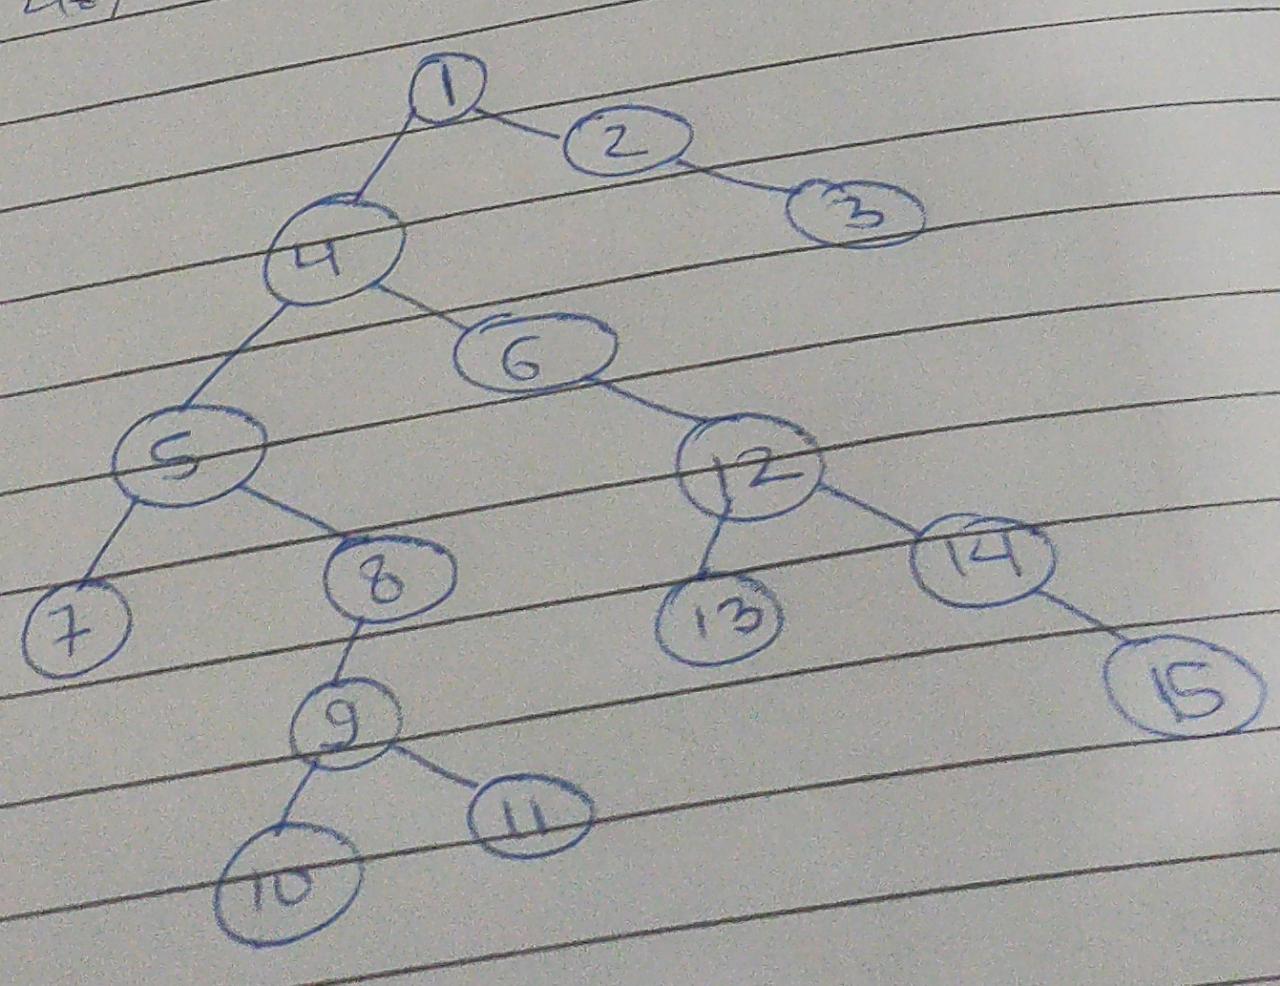 1
2
3
4
6
5
12
14
8
7
13
15
9
11
10